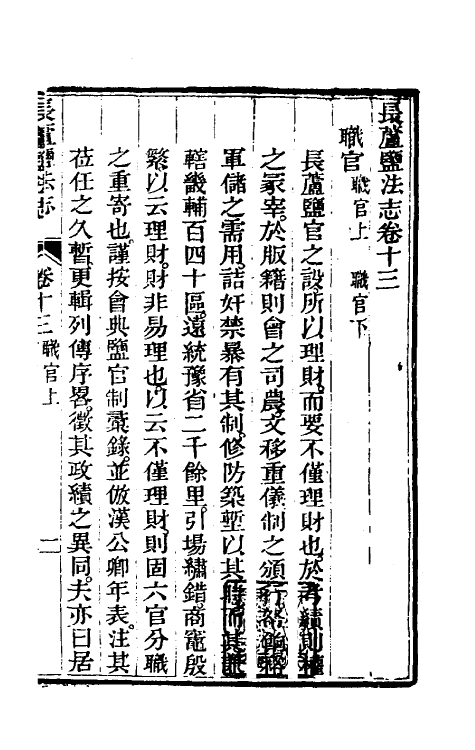 長蘆鹽法志卷十三
職官 職官上 職官下
長蘆鹽官之設所以理財而要不僅理財也於考績則權
之冢宰於版籍則會之司農文移重儀制之頒行
軍儲之需用詰奸禁暴有其制修防築塹以其時而其
轄畿輔百四十區遠統豫省二千餘里引場繡錯商竈殷
繁以云理財財非易理也以云不僅理財則固六官分職
之重寄也謹按會典鹽官制彙錄並倣漢公卿年表注其
莅任之久暫更輯列傳序畧徵其政績之異同夫亦曰居
長蘆鹽法志 卷十三 職官上 一